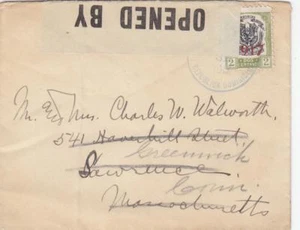 OPENED BY
1917
2 2
Mr. and Mrs. Charles W. Walworth,
541 Haverhill Street,
Greenwich
Lawrence
Conn.
Massachusetts